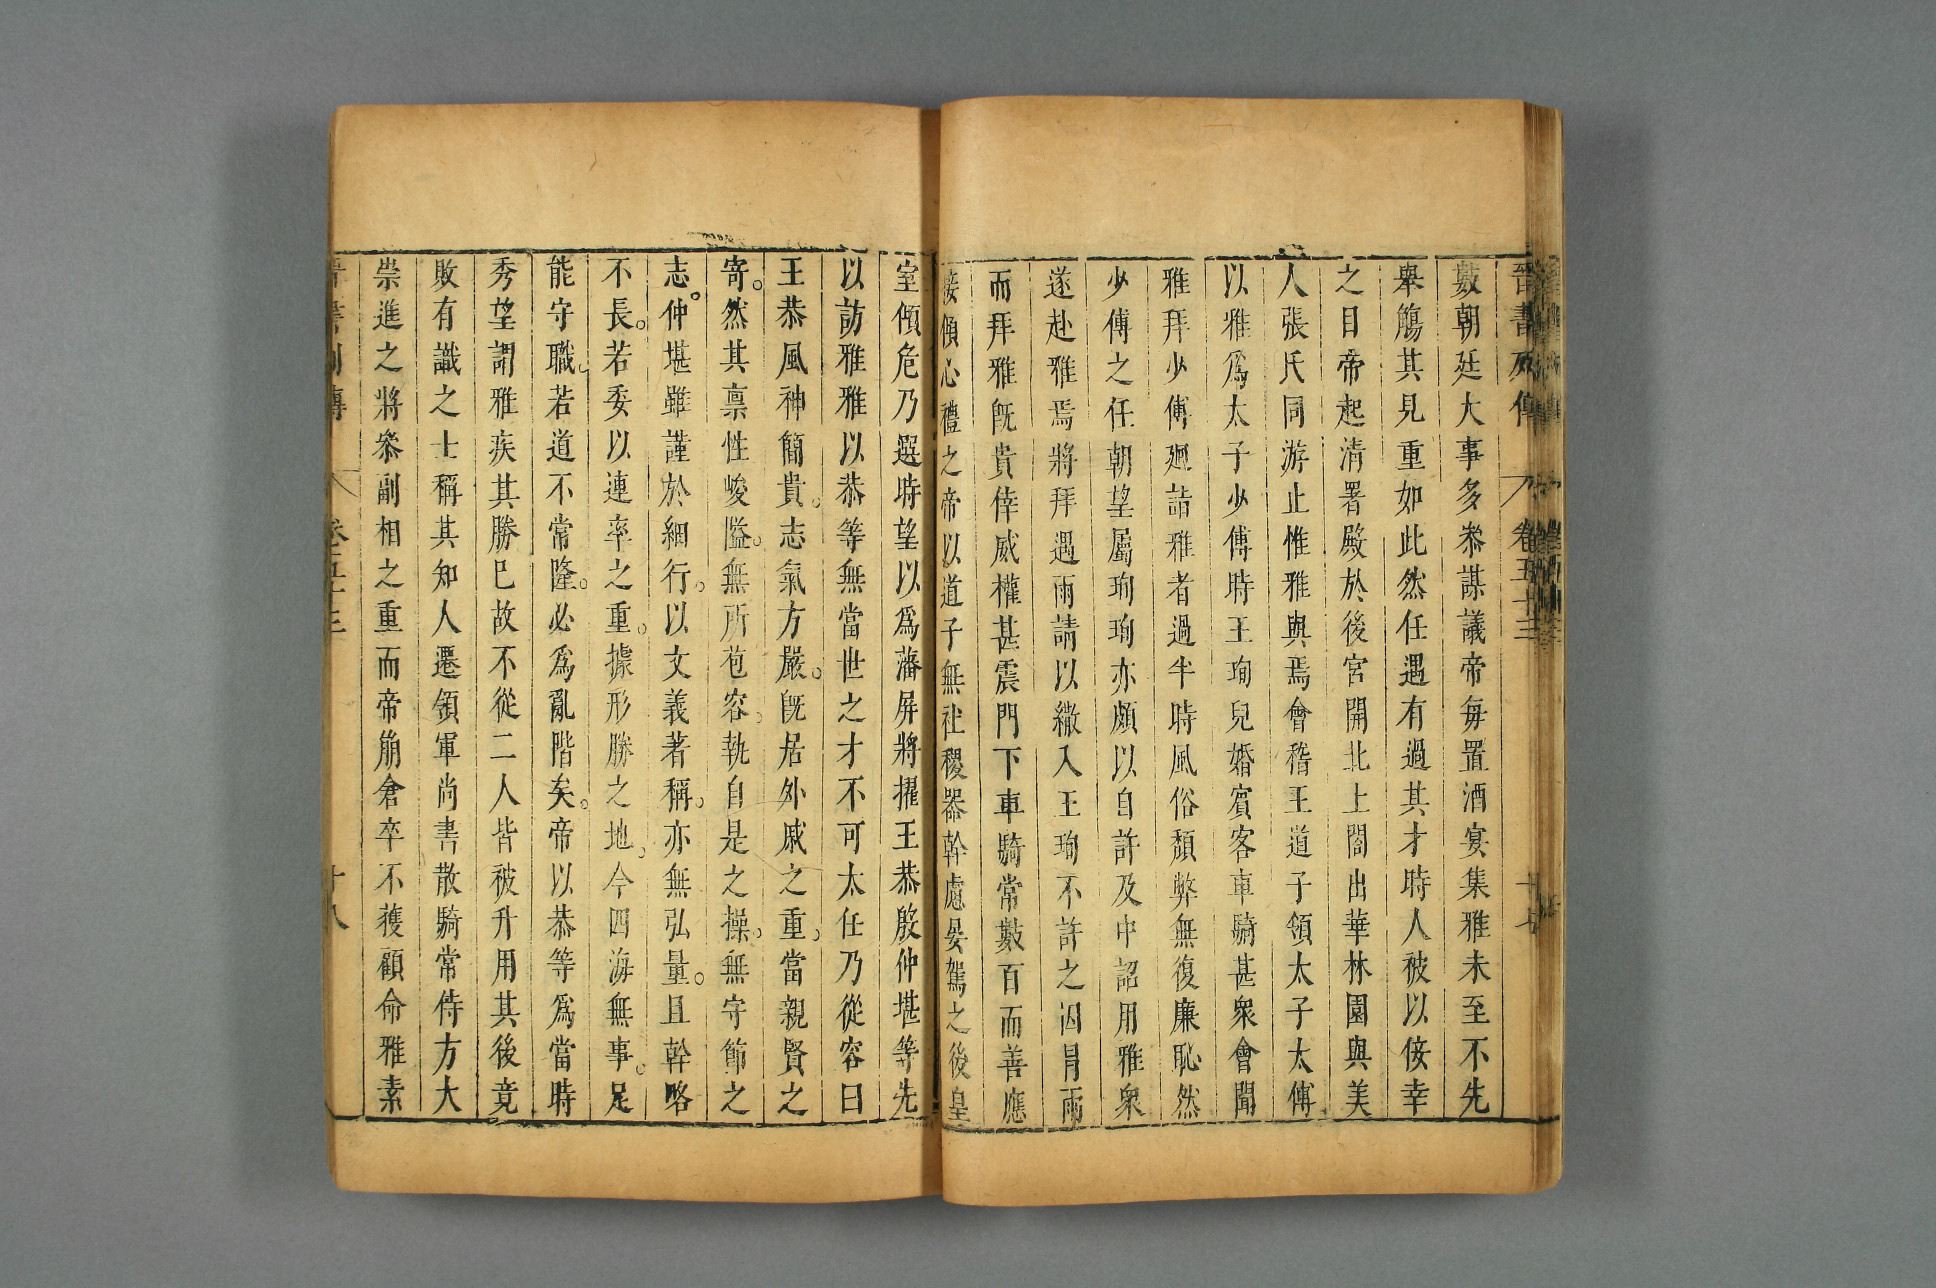 晉書列傳 卷五十三 十七
數朝廷大事多叅謀議帝每置酒宴集雅未至不先
舉觴其見重如此然任遇有過其才時人被以侫幸
之目帝起清署殿於後宮開北上閤出華林園與美
人張氏同游止惟雅與焉會稽王道子領太子太傅
以雅爲太子少傅時王珣兒婚賓客車騎甚衆會聞
雅拜少傅廻詣雅者過半時風俗頹弊無復廉恥然
少傅之任朝望屬珣珣亦頗以自許及中詔用雅衆
遂赴雅焉將拜遇雨請以繖入王珣不許之因冐雨
而拜雅旣貴倖威權甚震門下車騎常數百而善應
接傾心禮之帝以道子無社稷器幹慮晏駕之後皇
室傾危乃選時望以爲藩屏將擢王恭殷仲堪等先
以訪雅雅以恭等無當世之才不可太任乃從容曰
王恭風神簡貴。志氣方嚴。旣居外戚之重。當親賢之
寄。然其稟性峻隘。無所苞容。執自是之操。無守節之
志。仲堪雖謹於細行。以文義著稱。亦無弘量。且幹略
不長。若委以連率之重。據形勝之地。今四海無事。足
能守職。若道不常隆。必爲亂階矣。帝以恭等爲當時
秀望謂雅疾其勝巳故不從二人皆被升用其後竟
敗有識之士稱其知人遷領軍尚書散騎常侍方大
崇進之將叅副相之重而帝崩倉卒不獲顧命雅素
晉書列傳 卷五十三 十八